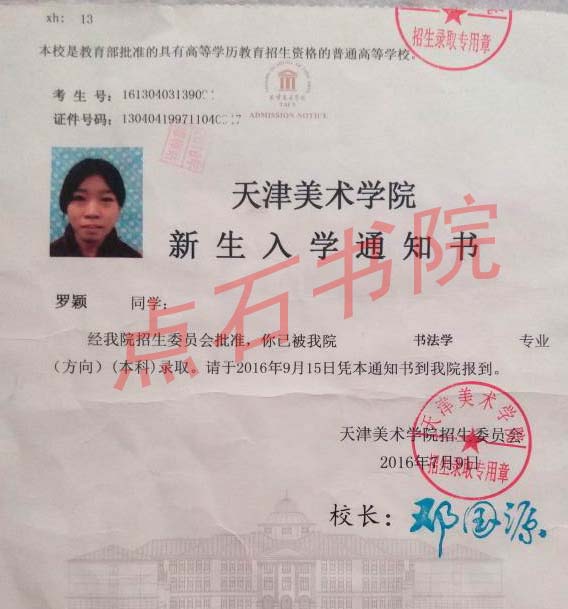 xh: 13
招生录取专用章
本校是教育部批准的具有高等学历教育招生资格的普通高等学校。
考生号: 161304031390
证件号码: 13040419971104
ADMISSION NOTICE
天津美术学院
新生入学通知书
点石书院
罗颖 同学:
经我院招生委员会批准，你已被我院 书法学 专业
（方向）(本科)录取。请于2016年9月15日凭本通知书到我院报到。
天津美术学院
招生录取专用章
天津美术学院招生委员会
2016年7月9日
校长: 邓国源